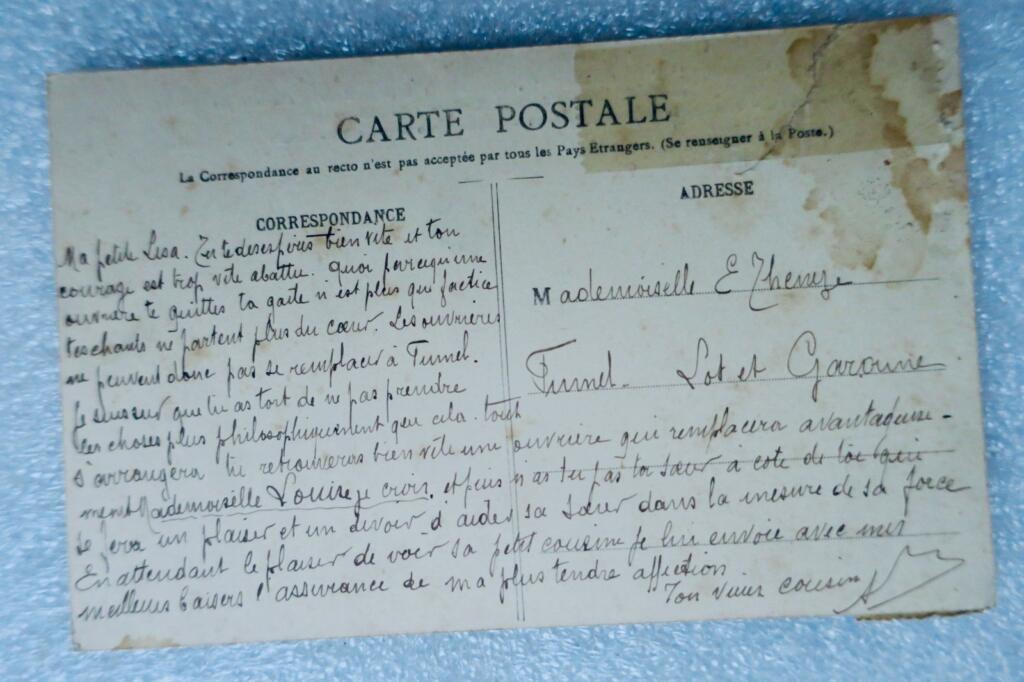 CARTE POSTALE
La Correspondance au recto n'est pas acceptée par tous les Pays Etrangers. (Se renseigner à la Poste.)
CORRESPONDANCE
Ma petite Lisa. Tu te desespères bien vite et ton
courage est trop vite abattu. Quoi parcequ'une
ouvrière te quittes ta gaite n'est plus que factice
tes chants ne partent plus du cœur. Les ouvrières
ne peuvent donc pas se remplacer à Fumel.
Je suis sur que tu as tort de ne pas prendre
les choses plus philosophiquement que cela. tout
s'arrangera tu retrouveras bien vite une ouvrière qui remplacera avantageuse-
ment Mademoiselle Louise je crois, et puis n'as tu pas ta sœur a cote de toi qui
se fera un plaisir et un devoir d'aider sa sœur dans la mesure de sa force
En attendant le plaisir de voir sa petit cousine je lui envoie avec mes
meilleurs baisers l'assurance de ma plus tendre affection.
Ton vieux cousin
ADRESSE
Mademoiselle E
Fumel. Lot et Garonne